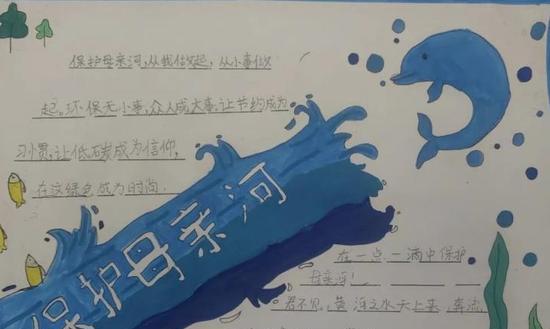 保护母亲河,从我做起,从小事做
起。环保无小事,众人成大事,让节约成为
习惯,让低碳成为信仰,
在这绿色成为时尚.
保护母亲河
在一点一滴中保护
母亲河!
君不见,黄河之水天上来,奔流